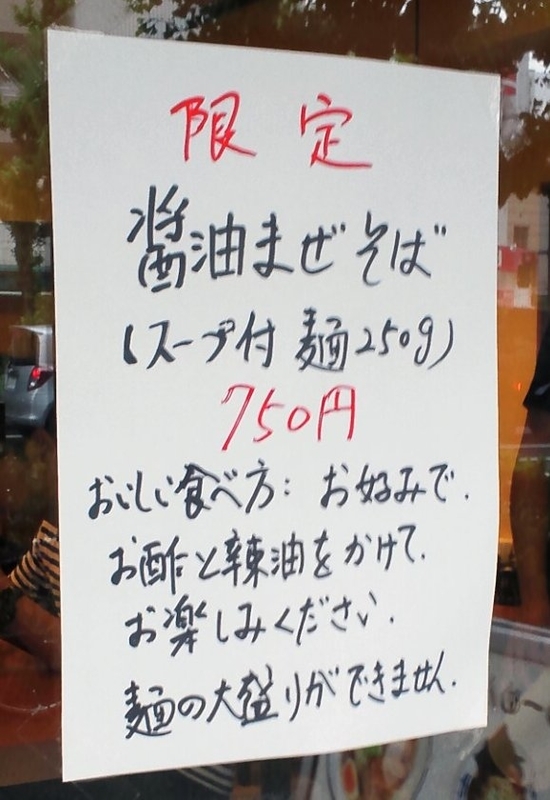 限定
醤油まぜそば
(スープ付 麺250g)
750円
おいしい食べ方: お好みで.
お酢と辣油をかけて.
お楽しみください.
麺の大盛りができません.